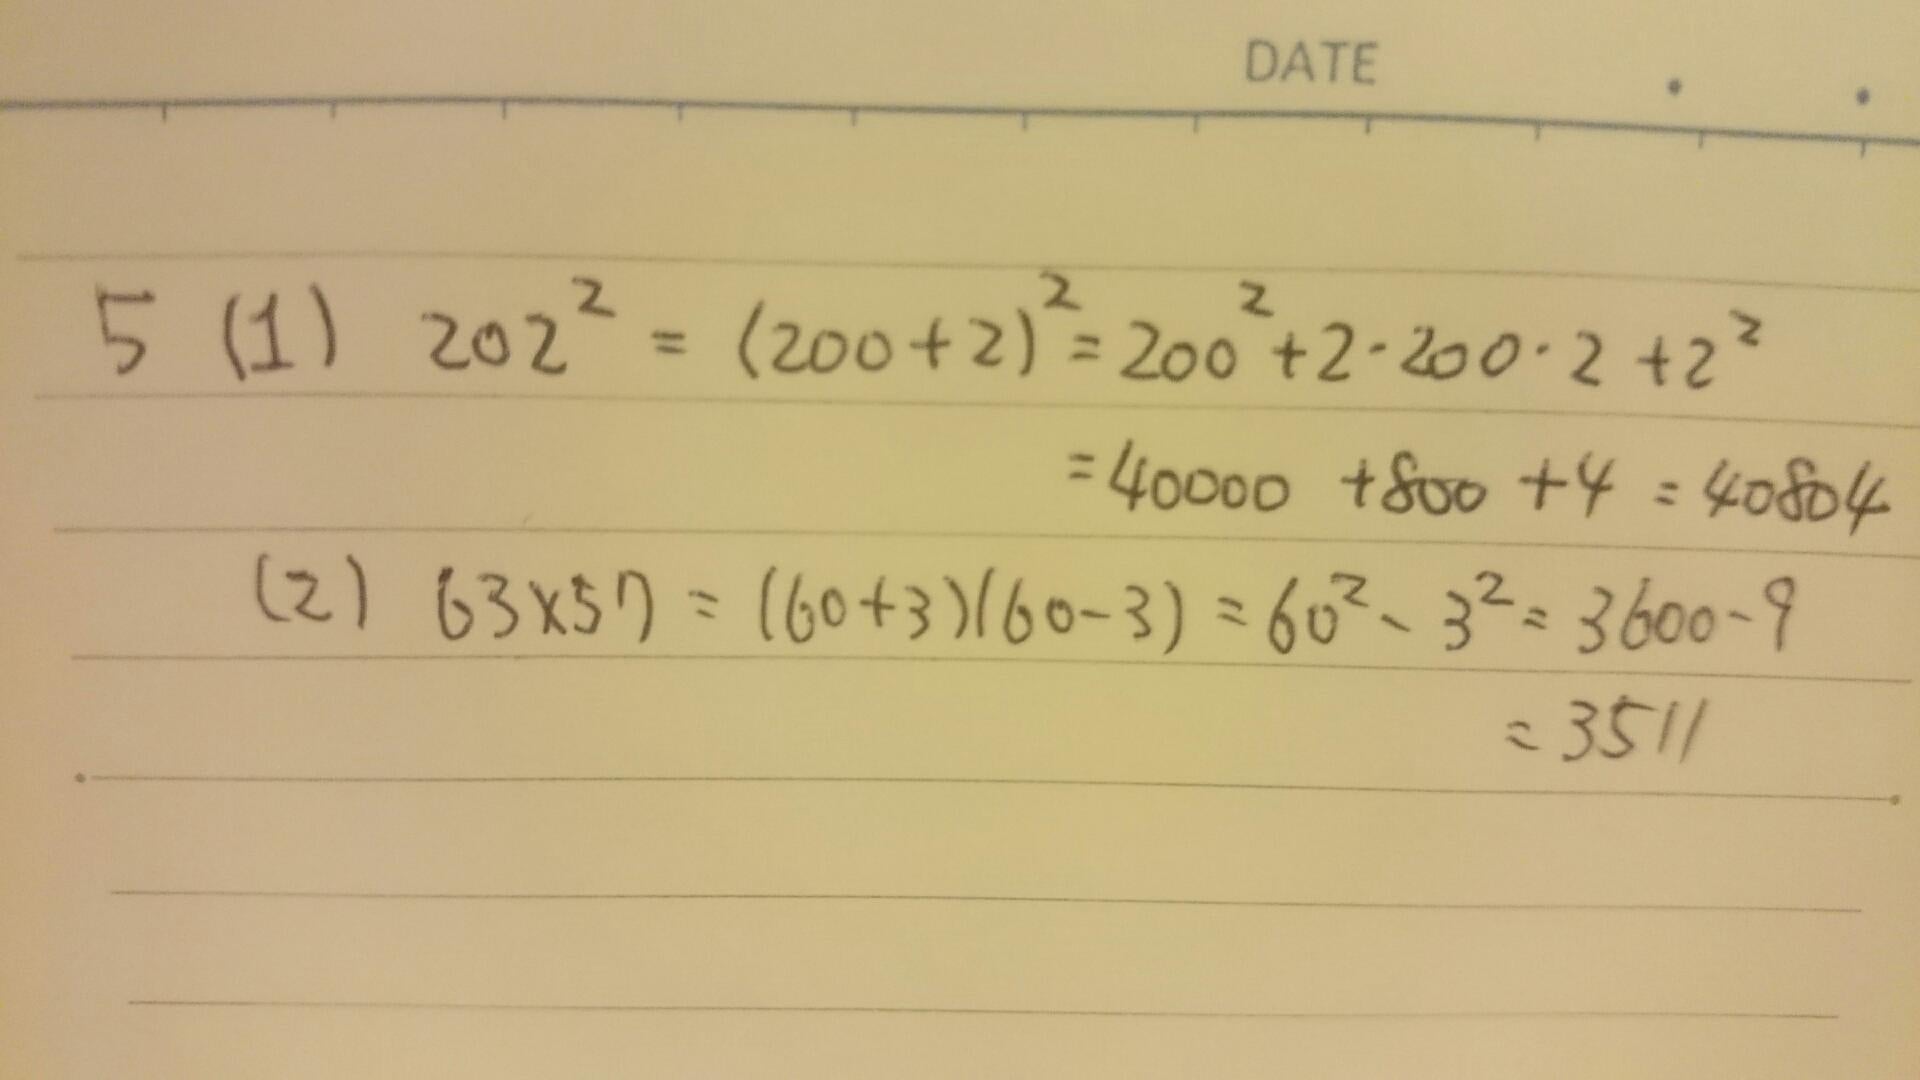 DATE . .
5 (1) 202² = (200+2)² = 200² +2·200·2 +2²
=40000 +800 +4 = 40804
(2) 63×57 = (60+3)(60-3) = 60² - 3² = 3600-9
= 3511